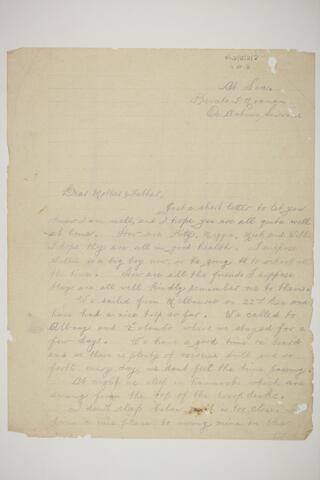 At Sea.
Private
On Active Service
Dear Mother & Father,
Just a short letter to let you
know I am well, and I hope you are all quite well
at home. How are
I hope they are all in good health. I suppose
is a big boy now, is he going to school all
the time. How are all the friends I suppose
they are all well kindly remember me to them.
We sailed from Melbourne on 22nd and
have had a nice trip so far. We called to
Albany and Colombo where we stayed for a
few days. We have a good time on board
and as there is plenty of exercise drill and so
forth every day, we dont feel the time passing.
At night we sleep in hammocks which are
swung from the top of the decks.
I don't sleep below it is too close.
nice place to swing mine on the